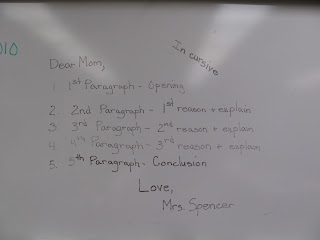 010
In cursive
Dear Mom,
1. 1st Paragraph - Opening
2. 2nd Paragraph - 1st reason + explain
3. 3rd Paragraph - 2nd reason + explain
4. 4th Paragraph - 3rd reason + explain
5. 5th Paragraph - Conclusion
Love,
Mrs. Spencer